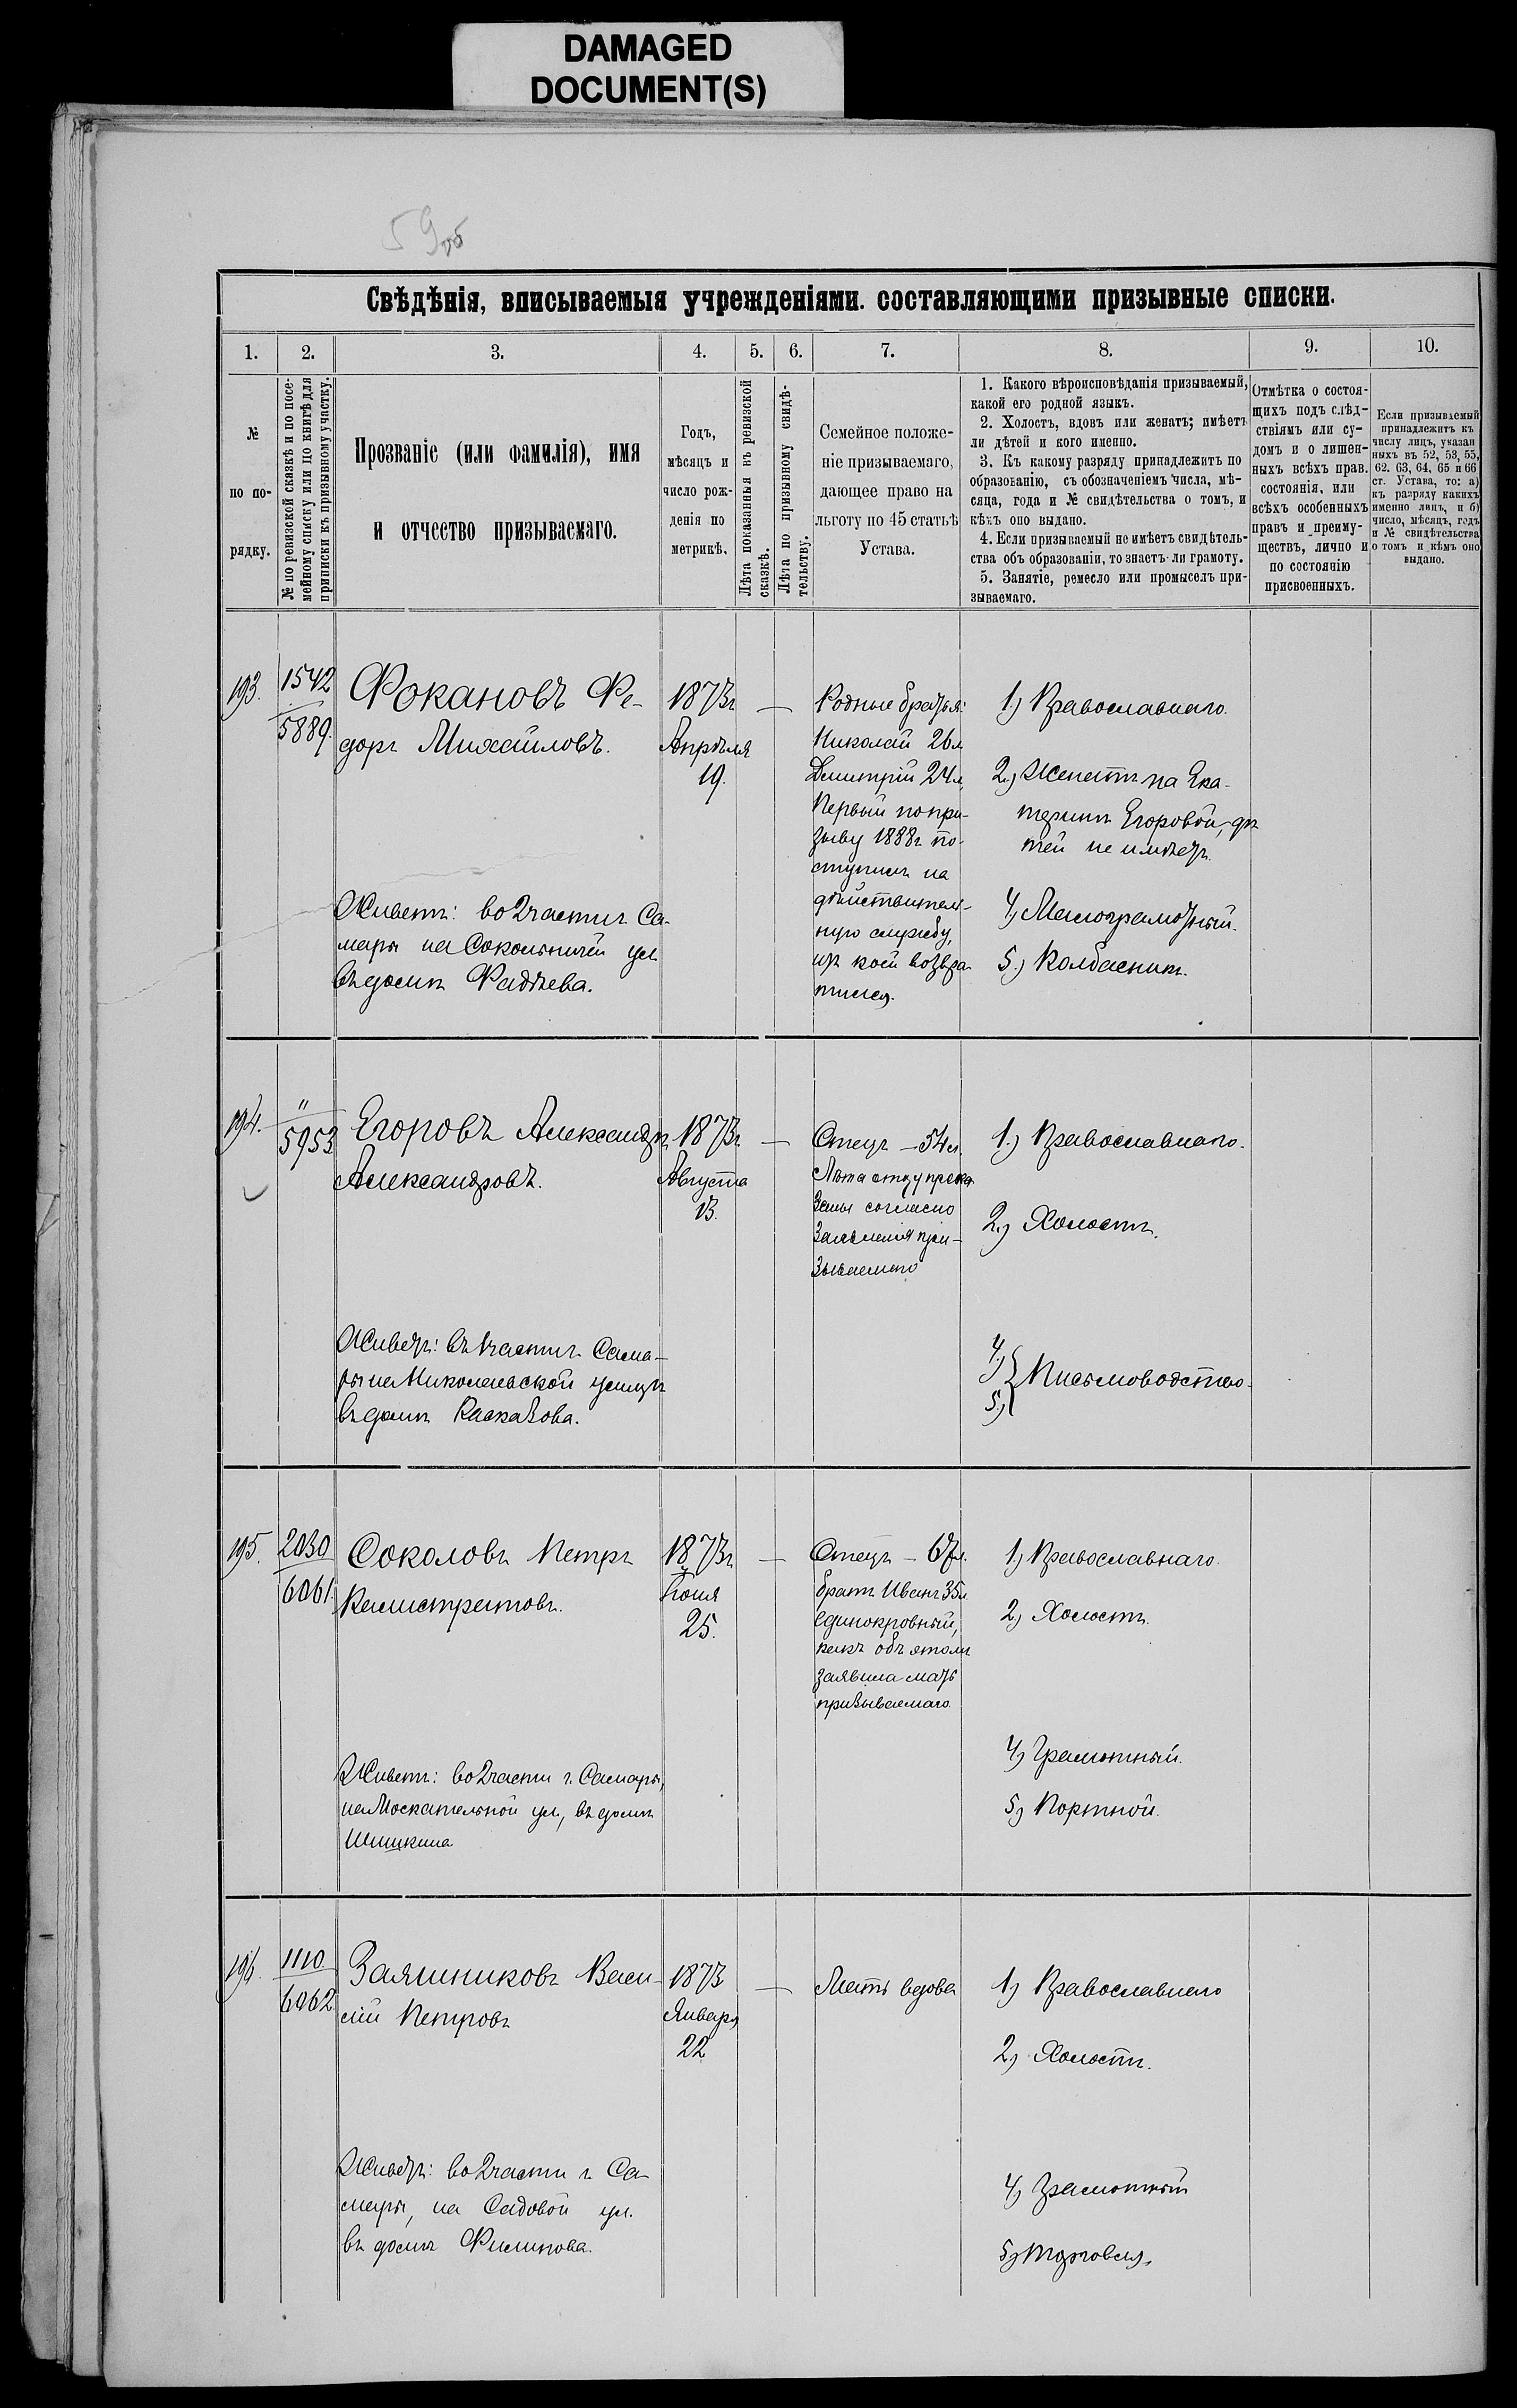 DAMAGED
DOCUMENT(S)
59об
Свѣдѣнія, вписываемыя учрежденіями. составляющими призывные списки.
1. 2. 3. 4. 5. 6. 7. 8. 9. 10.
№
по по-
рядку.
№ по ревизской сказкѣ и по посе-
мейному списку или по книгѣ для
приписки къ призывному участку.
Прозваніе (или фамилія), имя
и отчество призываемаго.
Годъ,
мѣсяцъ и
число рож-
денія по
метрикѣ.
Лѣта показанныя къ ревизской
сказкѣ.
Лѣта по призывному свидѣ-
тельству.
Семейное положе-
ніе призываемаго,
дающее право на
льготу по 45 статьѣ
Устава.
1. Какого вѣроисповѣданія призываемый,
какой его родной языкъ.
2. Холостъ, вдовъ или женатъ; имѣетъ
ли дѣтей и кого именно.
3. Къ какому разряду принадлежитъ по
образованію, съ обозначеніемъ числа, мѣ-
сяца, года и № свидѣтельства о томъ, и
кѣмъ оно выдано.
4. Если призываемый не имѣетъ свидѣтель-
ства объ образованіи, то знаетъ-ли грамоту.
5. Занятіе, ремесло или промыселъ при-
зываемаго.
Отмѣтка о состоя-
щихъ подъ слѣд-
ствіямъ или су-
домъ и о лишен-
ныхъ всѣхъ прав.
состоянія, или
всѣхъ особенныхъ
правъ и преиму-
ществъ, лично и
по состоянію
присвоенныхъ.
Если призываемый
принадлежитъ къ
числу лицъ, указан
ныхъ въ 52, 53, 55,
62. 63, 64, 65 и 66
ст. Устава, то: а)
къ разряду какихъ
именно лицъ, и б)
число, мѣсяцъ, годъ
и № свидѣтельства
о томъ и кѣмъ оно
выдано.
193.
1542
5889.
Фокановъ Фе-
доръ Михайловъ.
Живетъ: во 2 части г. Са-
мары на Сокольничей ул.
въ домѣ Фадѣева.
1873 г.
Апрѣля
19.
—
Родные братья:
Николай 26 л.
Дмитрій 24 л.
Первый по при-
зыву 1888 г. по-
ступилъ на
дѣйствитель-
ную службу,
изъ коей возвра-
тился.
1.) Православнаго.
2.) Женатъ на Ека-
теринѣ Егоровой, дѣ
тей не имѣетъ.
4.) Малограмотный.
5.) Колбасникъ.
194.
"
5953
Егоровъ Александръ
Александровъ.
Живетъ: въ 1 части г. Сама-
ры на Николаевской улицѣ
въ домѣ Касказова.
1873 г.
Августа
13.
—
Отецъ — 54 л.
Лѣта отцу пока-
заны согласно
Заявленія при-
зываемаго
1.) Православнаго.
2.) Холостъ.
4.)
5.)
Письмоводство.
195.
2030
6061.
Соколовъ Петръ
Калистратовъ.
Живетъ: во 2 части г. Самары,
на Москательной ул., въ домѣ
Шишкина
1873 г.
Іюня
25.
—
Отецъ — 67 л.
братъ Иванъ 35 л.
единокровный,
какъ объ этомъ
заявила мать
призываемаго
1.) Православнаго.
2.) Холостъ.
4.) Грамотный.
5.) Портной.
196.
1110.
6062
Заяшниковъ Васи-
лій Петровъ
Живетъ: во 2 части г. Са-
мары, на Садовой ул.
въ домѣ Филипова.
1873
Января
22
—
Мать вдова
1.) Православнаго
2.) Холостъ.
4.) Грамотный
5.) Торговля.